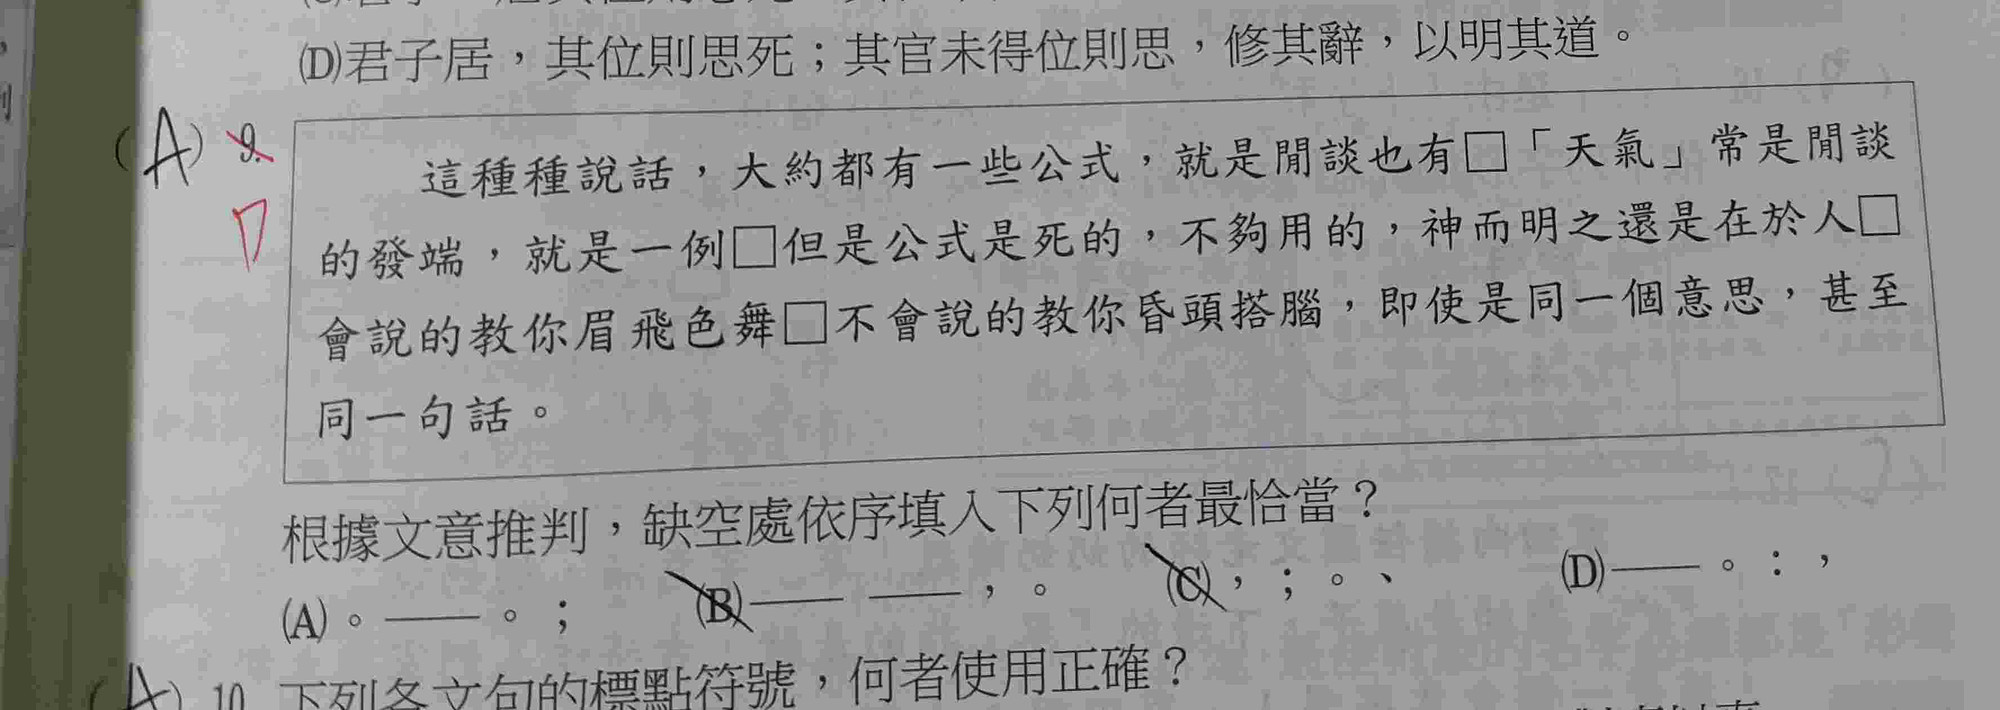 (D)君子居，其位則思死；其官未得位則思，修其辭，以明其道。
(A) 9.
D
這種種說話，大約都有一些公式，就是閒談也有□「天氣」常是閒談
的發端，就是一例□但是公式是死的，不夠用的，神而明之還是在於人□
會說的教你眉飛色舞□不會說的教你昏頭搭腦，即使是同一個意思，甚至
同一句話。
根據文意推判，缺空處依序填入下列何者最恰當？
(A)。——。； (B)—— ——，。 (C)，；。、 (D)——。：，
(A) 10. 下列各文句的標點符號，何者使用正確？